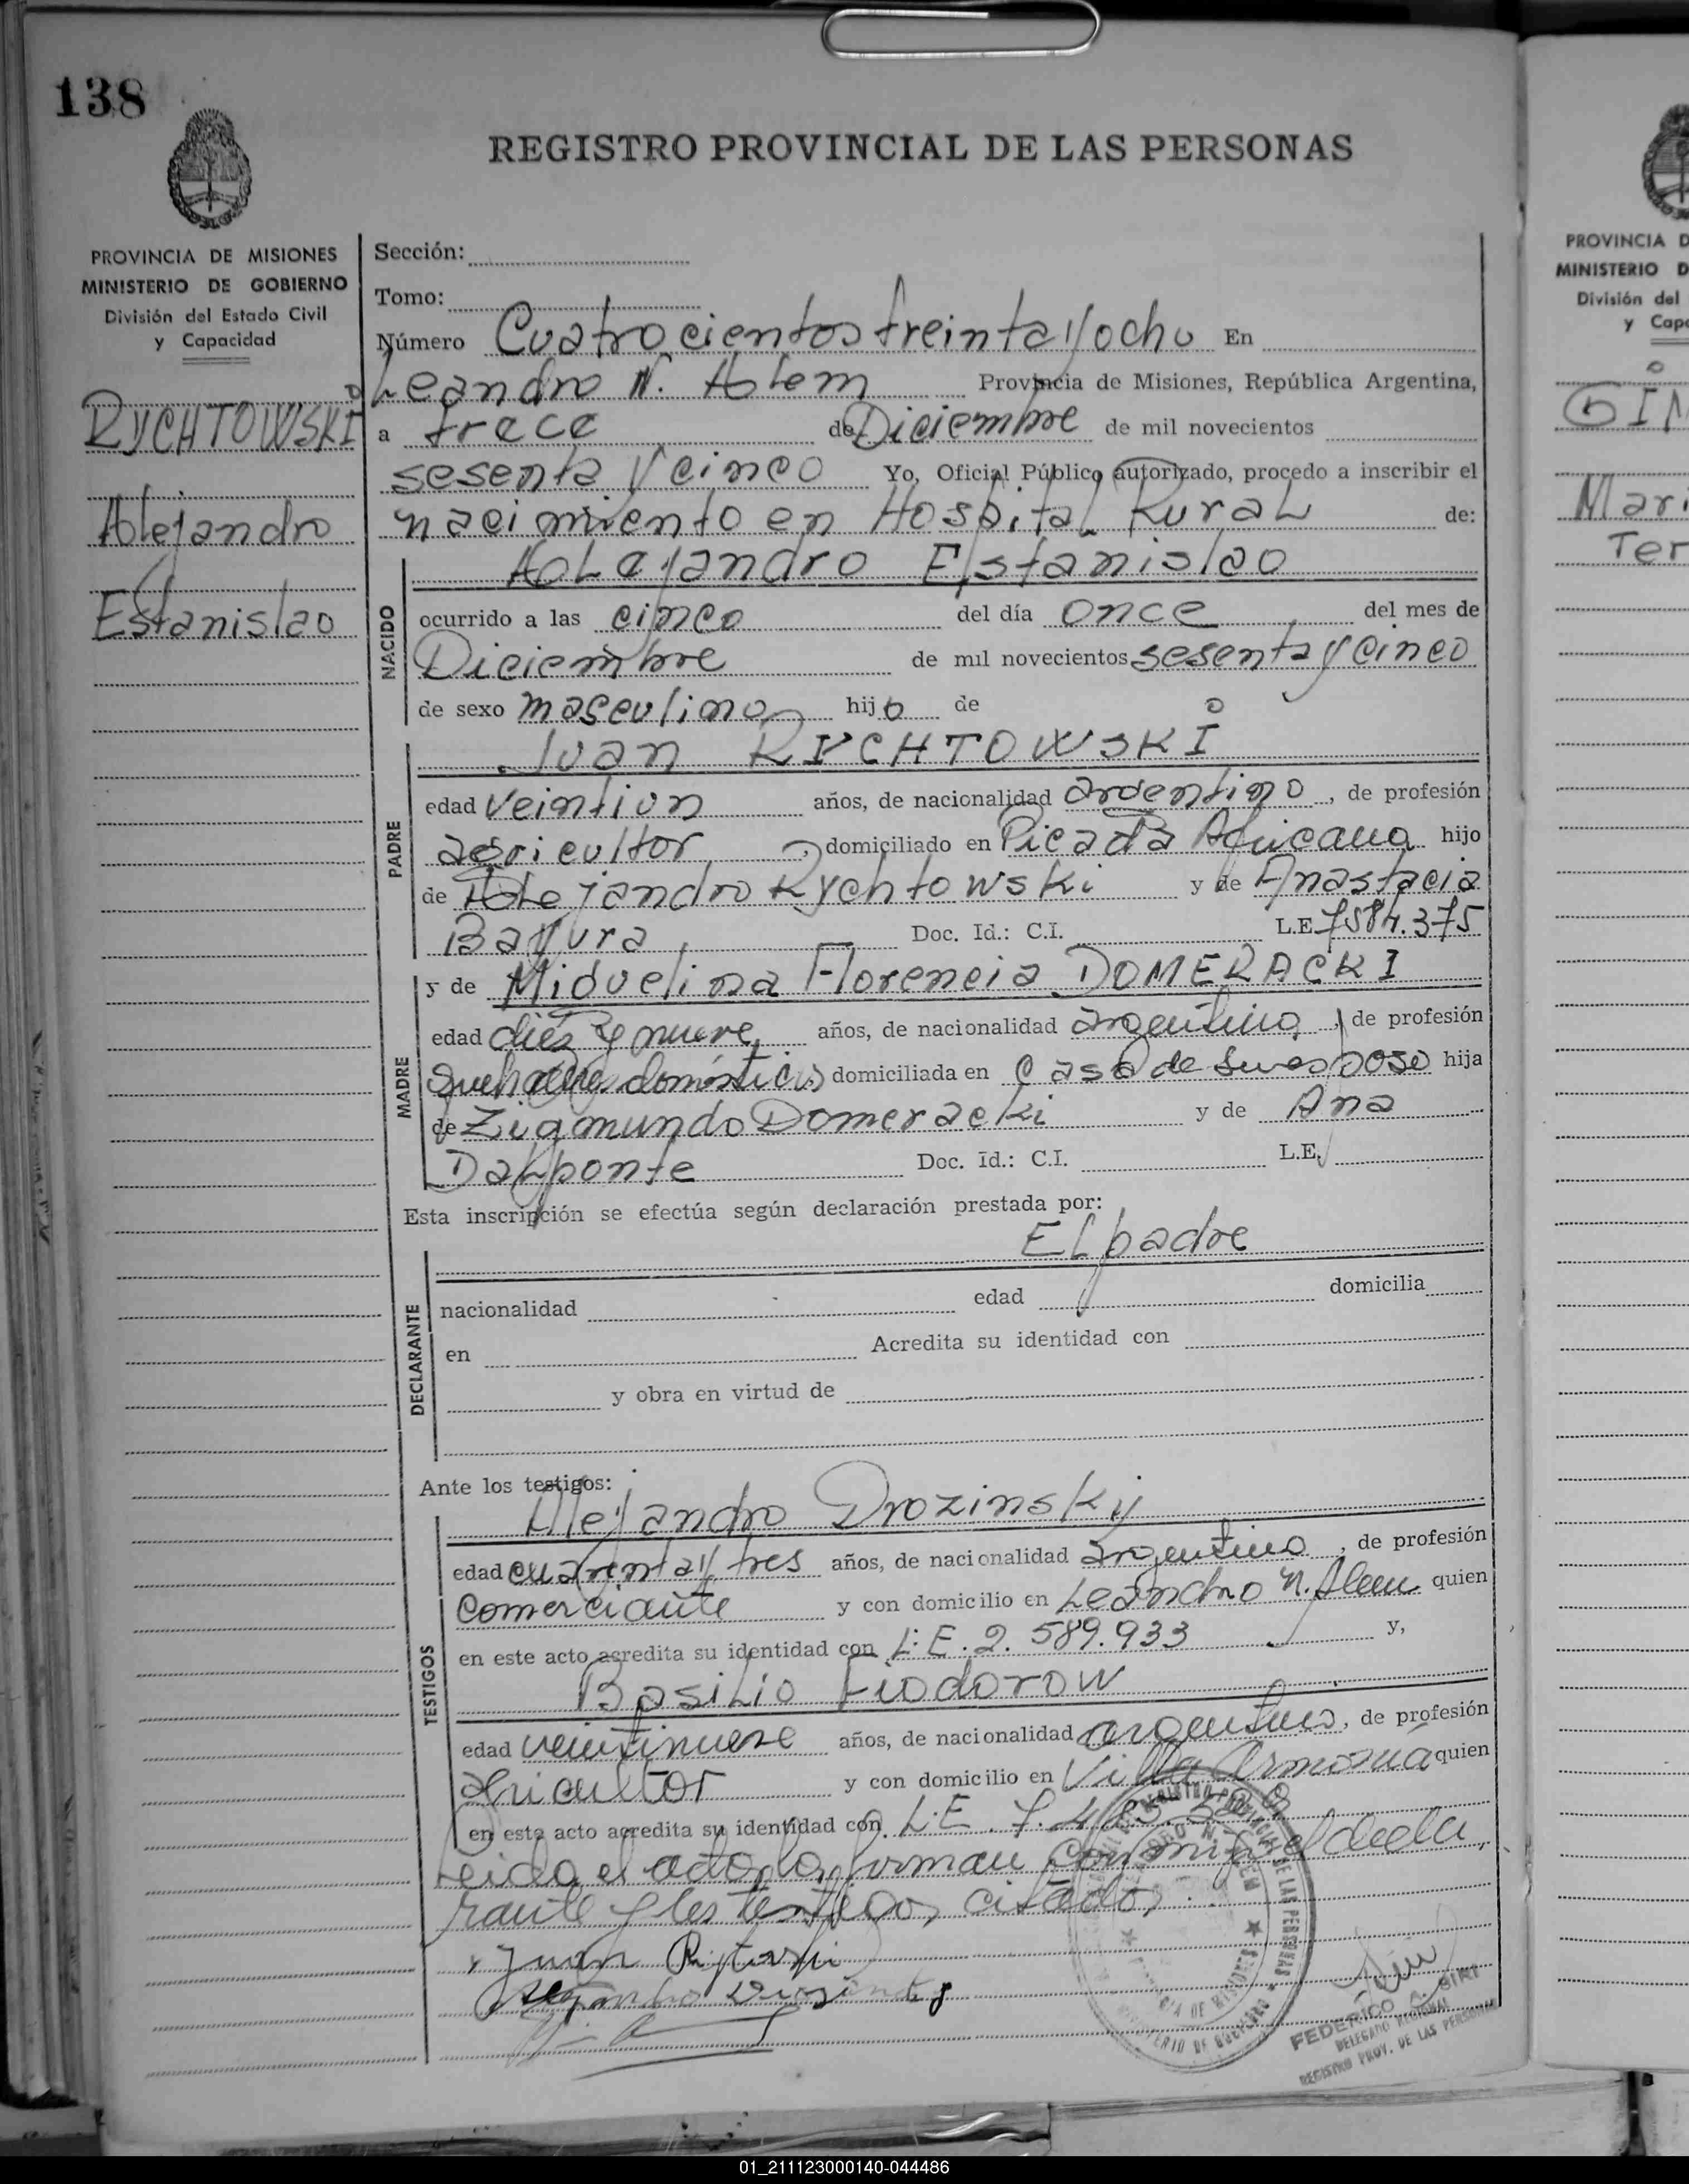 138
REGISTRO PROVINCIAL DE LAS PERSONAS
PROVINCIA DE MISIONES
MINISTERIO DE GOBIERNO
División del Estado Civil
y Capacidad
RYCHTOWSKI
Alejandro
Estanislao
Sección:
Tomo:
Número Cuatrocientos treinta y ocho En
Leandro N. Alem Provincia de Misiones, República Argentina,
a trece de Diciembre de mil novecientos
sesenta y cinco Yo, Oficial Público autorizado, procedo a inscribir el
nacimiento en Hospital Rural de:
Alejandro Estanislao
NACIDO
ocurrido a las cinco del día once del mes de
Diciembre de mil novecientos sesenta y cinco
de sexo masculino hijo de
Juan RYCHTOWSKI
PADRE
edad veintiun años, de nacionalidad argentino, de profesión
agricultor, domiciliado en Picada Africana hijo
de Alejandro Rychtowski y de Anastacia
Bayura Doc. Id.: C.I. L.E. 7584.375
y de Miguelina Florencia DOMERACKI
MADRE
edad diez y nueve años, de nacionalidad argentina, de profesión
quehaceres domésticos domiciliada en casa de su esposo hija
de Zigmundo Domeracki y de Ana
Dalponte Doc. Id.: C.I. L.E.
Esta inscripción se efectúa según declaración prestada por:
El padre
DECLARANTE
nacionalidad edad domicilia
en Acredita su identidad con
y obra en virtud de
Ante los testigos:
Alejandro Drozinskij
TESTIGOS
edad cuarenta y tres años, de nacionalidad argentino, de profesión
comerciante y con domicilio en Leandro N. Alem quien
en este acto acredita su identidad con L.E. 2.589.933 y,
Basilio Fiodorow
edad veintinueve años, de nacionalidad argentino, de profesión
agricultor y con domicilio en Villa Armonía quien
en este acto acredita su identidad con L.E. 7.
Leida el acta, la firman conmigo el decla
rante y los testigos citados.
Juan
FEDERICO A. SIRI
DELEGADO REGIONAL
REGISTRO PROV. DE LAS PERSONAS
PROVINCIA D
MINISTERIO D
División del
y Capa
GIM
Mari
Ter
01_211123000140-044486